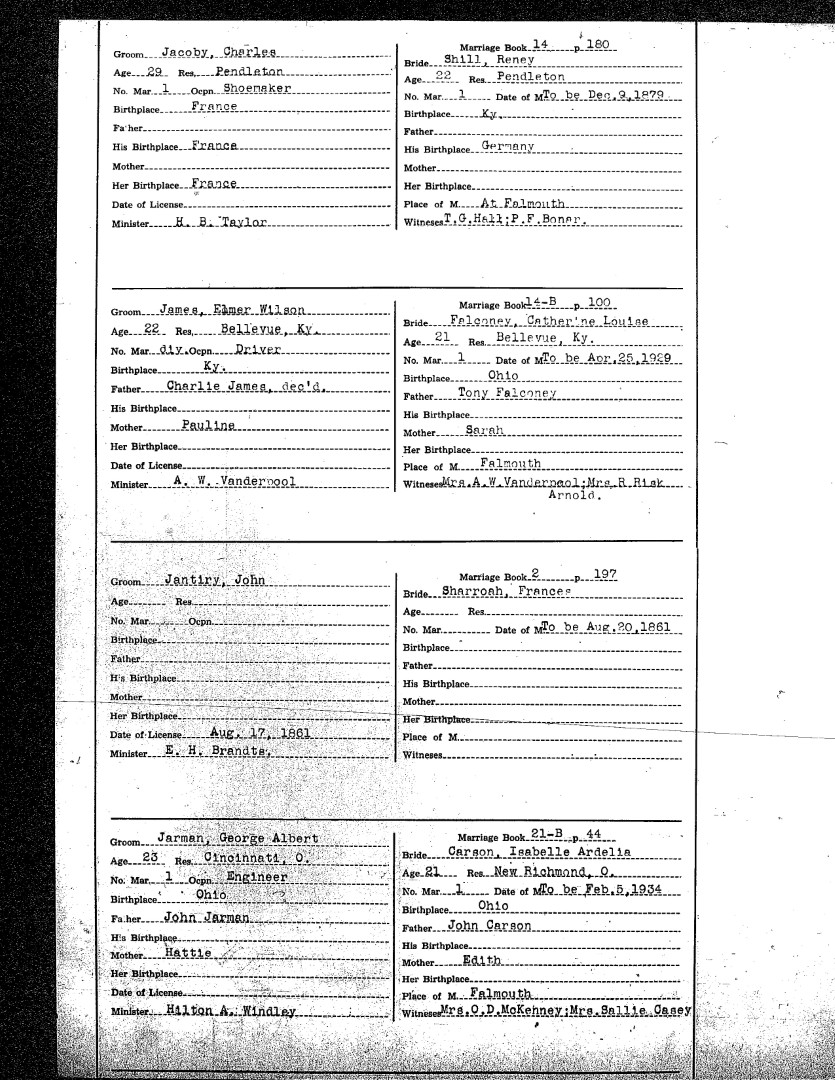 Groom Jacoby, Charles
Age 29 Res. Pendleton
No. Mar. 1 Ocpn. Shoemaker
Birthplace France
Father
His Birthplace France
Mother
Her Birthplace France
Date of License
Minister H. B. Taylor
Marriage Book 14 p 180
Bride Shill, Reney
Age 22 Res. Pendleton
No. Mar. 1 Date of M To be Dec.9,1879
Birthplace Ky.
Father
His Birthplace Germany
Mother
Her Birthplace
Place of M. At Falmouth
Witnesses T.G.Hall;P.F.Boner.
Groom James, Elmer Wilson
Age 22 Res. Bellevue, Ky.
No. Mar. div. Ocpn. Driver
Birthplace Ky.
Father Charlie James, dec'd.
His Birthplace
Mother Pauline
Her Birthplace
Date of License
Minister A. W. Vanderpool
Marriage Book 14-B p 100
Bride Falconey, Catherine Louise
Age 21 Res. Bellevue, Ky.
No. Mar. 1 Date of M To be Apr.25,1929
Birthplace Ohio
Father Tony Falconey
His Birthplace
Mother Sarah
Her Birthplace
Place of M. Falmouth
Witnesses Mrs.A.W.Vanderpool;Mrs.R.Risk
Arnold.
Groom Jantiry, John
Age Res.
No. Mar. Ocpn.
Birthplace
Father
His Birthplace
Mother
Her Birthplace
Date of License Aug. 17, 1861
Minister E. H. Brandts.
Marriage Book 2 p 197
Bride Sharroah, Frances
Age Res.
No. Mar. Date of M To be Aug.20,1861
Birthplace
Father
His Birthplace
Mother
Her Birthplace
Place of M.
Witnesses
Groom Jarman, George Albert
Age 23 Res. Cincinnati, O.
No. Mar. 1 Ocpn. Engineer
Birthplace Ohio
Father John Jarman
His Birthplace
Mother Hattie
Her Birthplace
Date of License
Minister Hilton A. Windley
Marriage Book 21-B p 44
Bride Carson, Isabelle Ardelia
Age 21 Res. New Richmond, O.
No. Mar. 1 Date of M To be Feb.5,1934
Birthplace Ohio
Father John Carson
His Birthplace
Mother Edith
Her Birthplace
Place of M. Falmouth
Witnesses Mrs.O.D.McKehney;Mrs.Sallie Casey